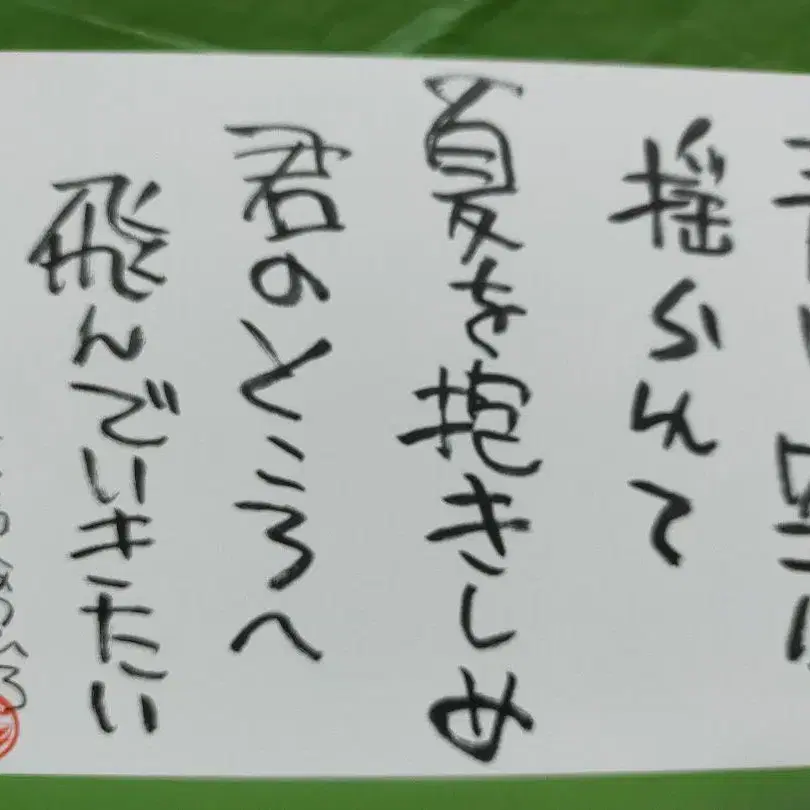 揺られて
夏を抱きしめ
君のところへ
飛んでいきたい